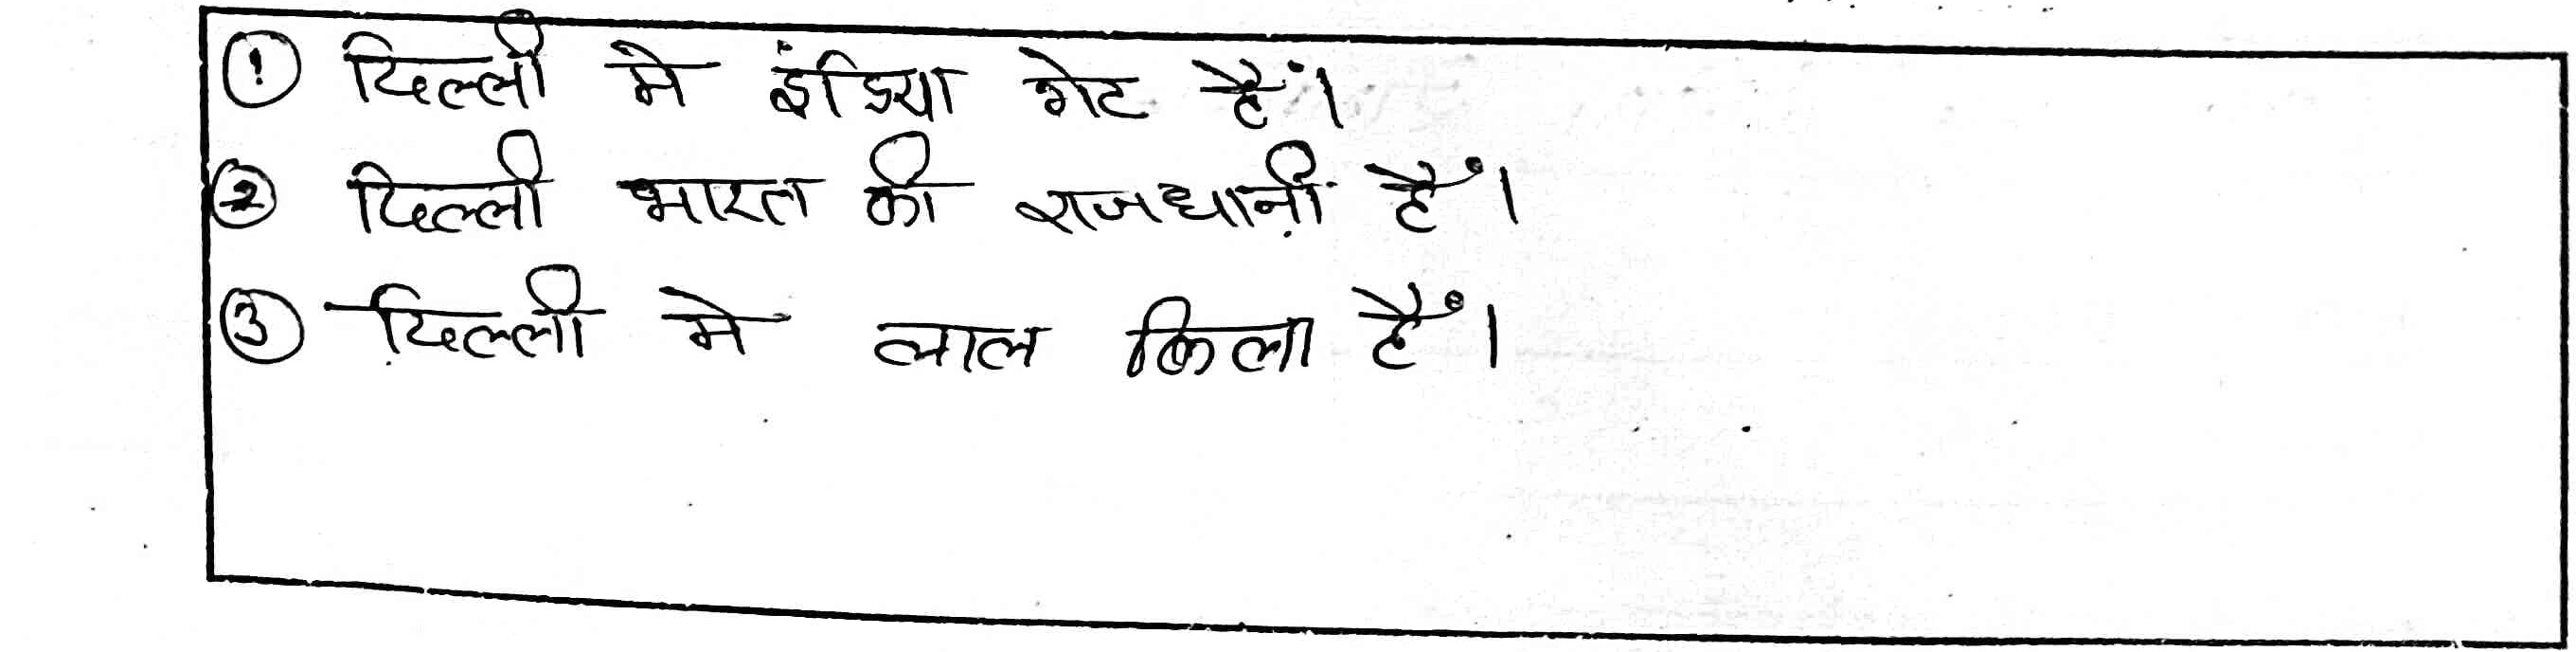 ① दिल्ली मे इंडिया गेट हैं।
② दिल्ली भारत की राजधानी हैं।
③ दिल्ली मे लाल किला हैं।